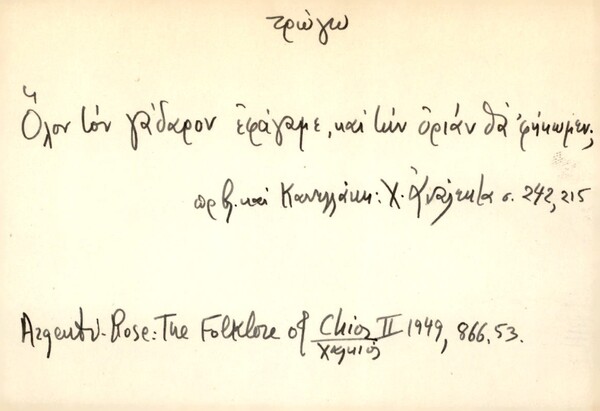 τρώγω
Ὅλον τὸν γάδαρον ἐφάγαμε, καὶ τὴν ὀριάν θὰ 'φήκωμεν;
πρβ. καὶ Κανελλάκη: Χ. Ἀνάλεκτα σ. 242, 215
Argenti-Rose: The Folklore of Chios II 1949, 866, 53.
Χαλκιός